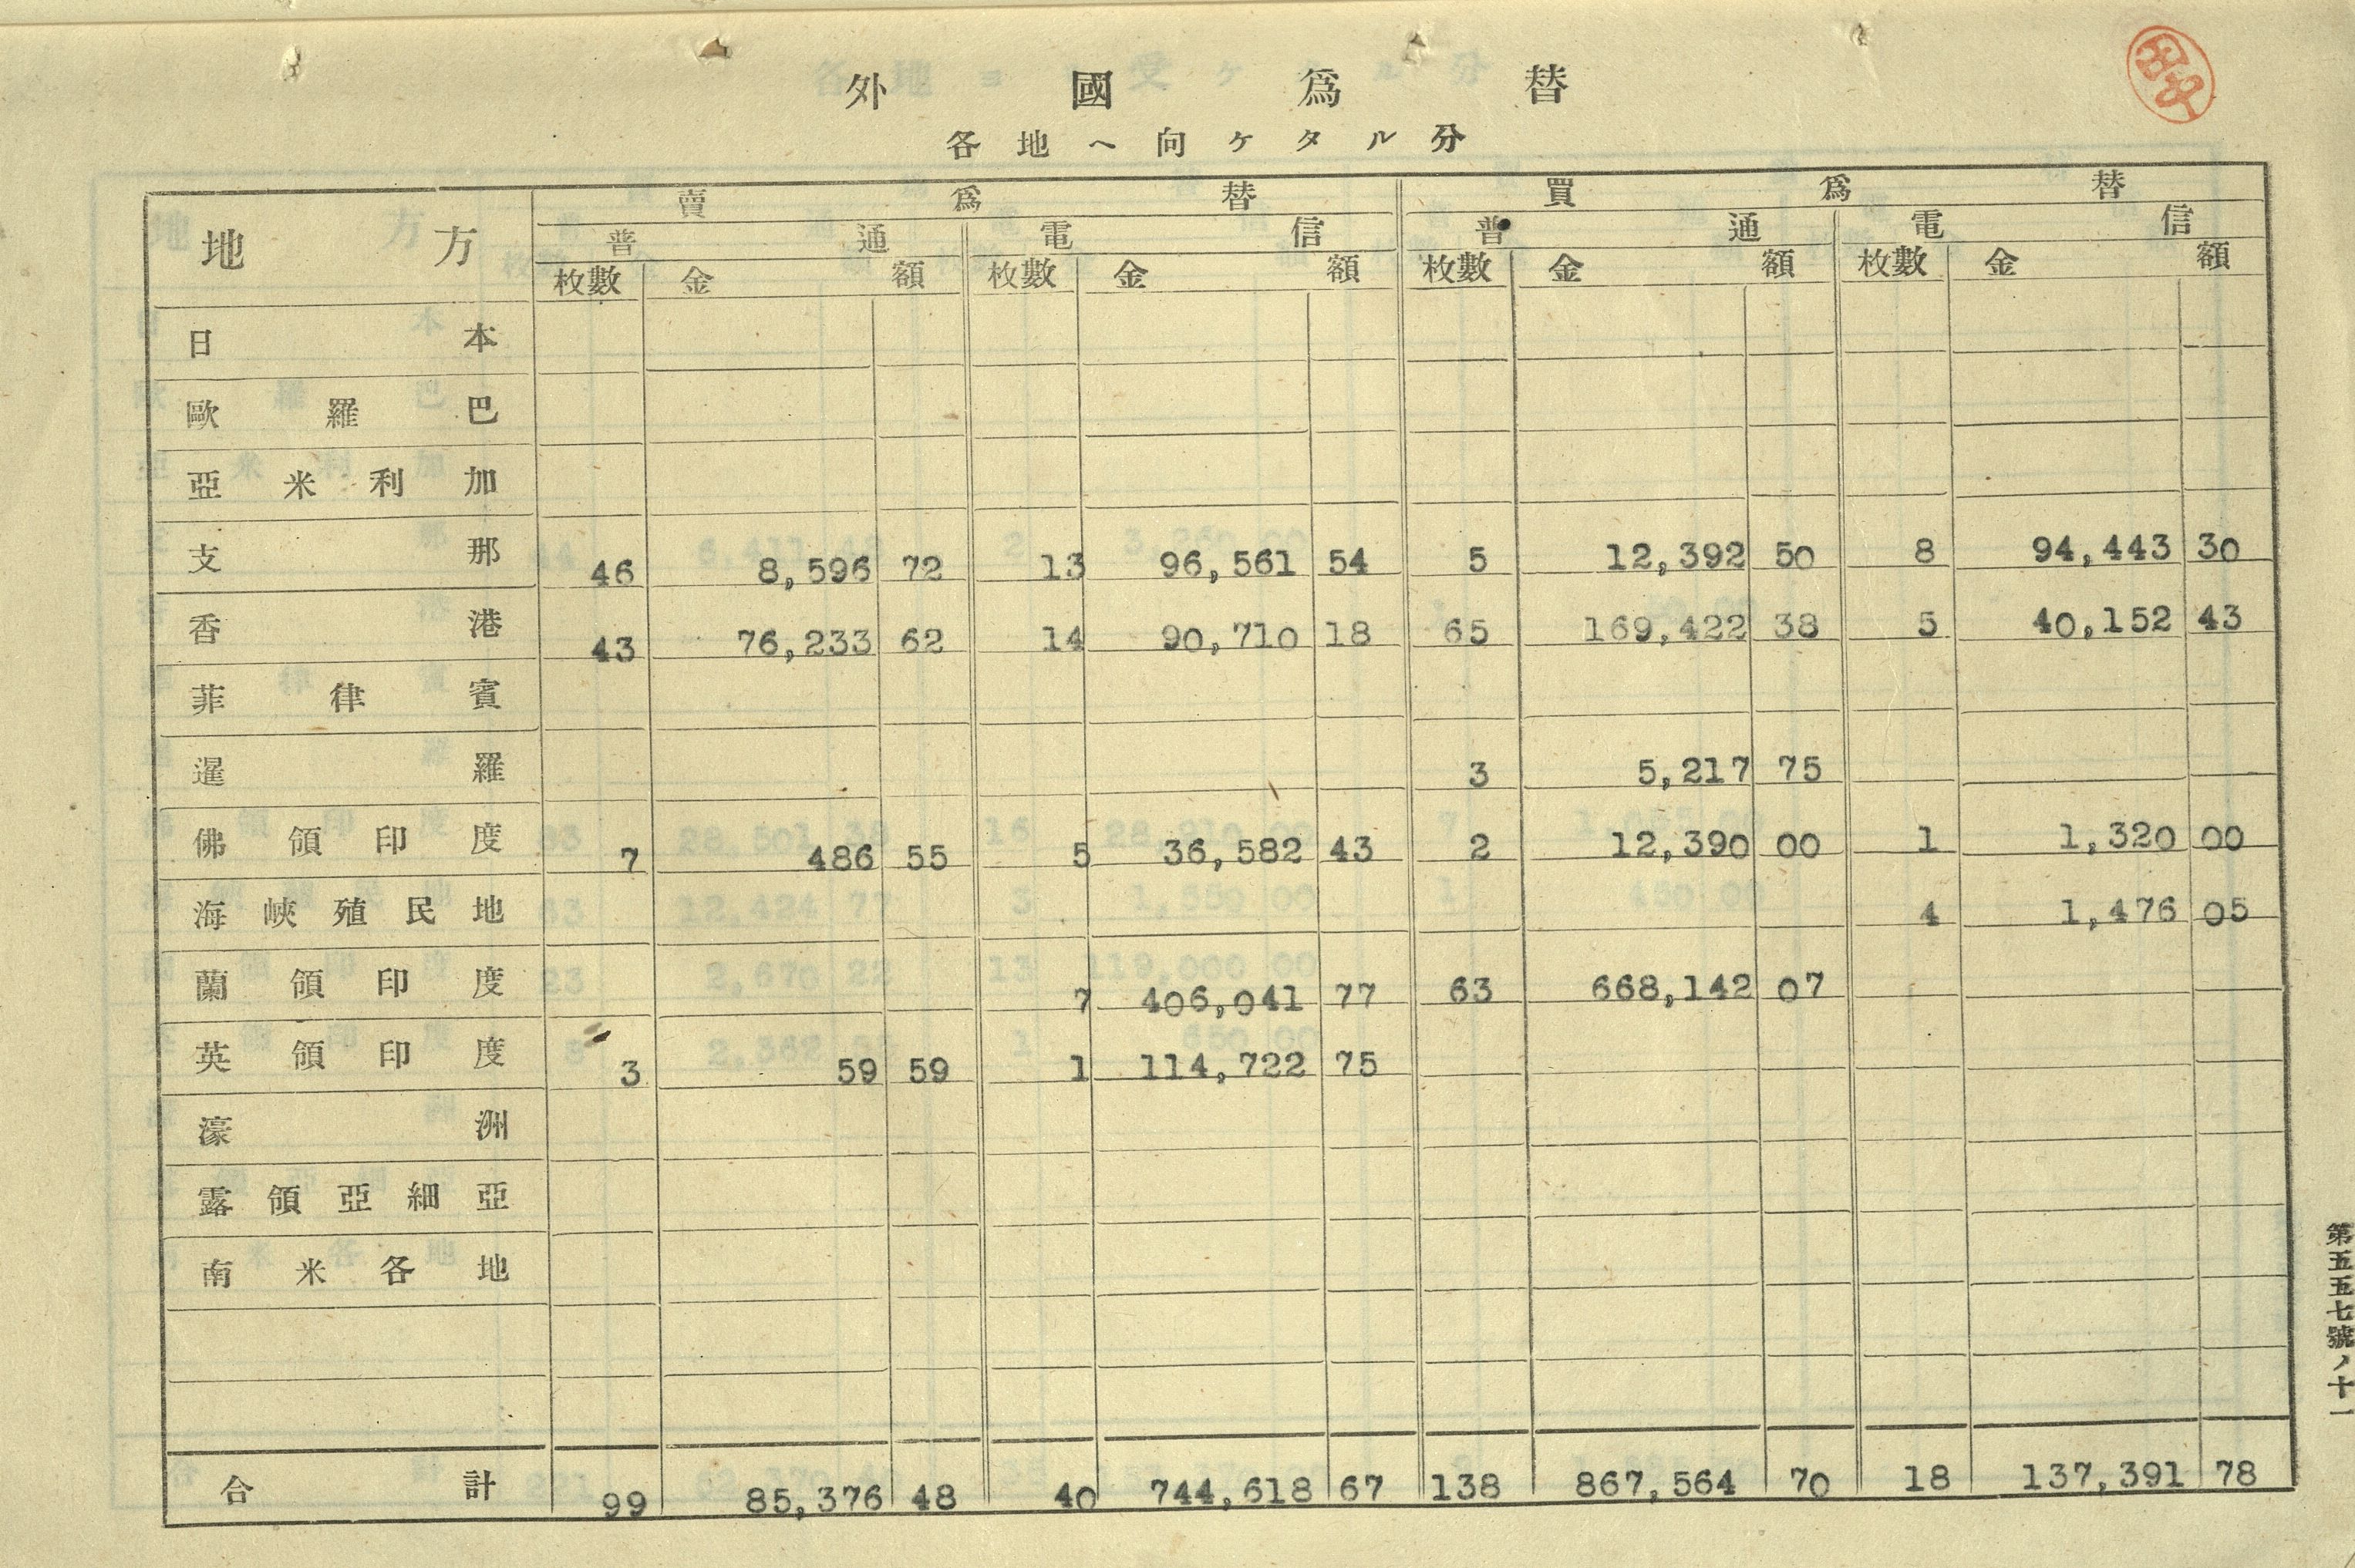 外國爲替
各地ヘ向ケタル分
地方 賣爲替 買爲替
普通 電信 普通 電信
枚數 金額 枚數 金額 枚數 金額 枚數 金額
日本
歐羅巴
亞米利加
支那 46 8,596 72 13 96,561 54 5 12,392 50 8 94,443 30
香港 43 76,233 62 14 90,710 18 65 169,422 38 5 40,152 43
菲律賓
暹羅 3 5,217 75
佛領印度 7 486 55 5 36,582 43 2 12,390 00 1 1,320 00
海峽殖民地 4 1,476 05
蘭領印度 7 406,041 77 63 668,142 07
英領印度 3 59 59 1 114,722 75
濠洲
露領亞細亞
南米各地
合計 99 85,376 48 40 744,618 67 138 867,564 70 18 137,391 78
第五五七號ノ十一